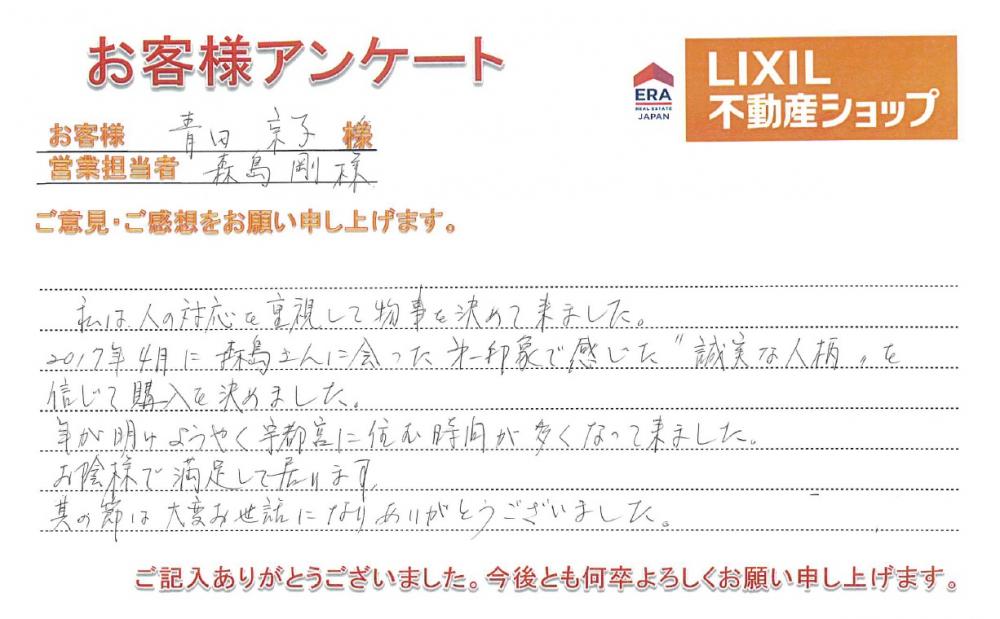 お客様アンケート
ERA
REAL ESTATE
JAPAN
LIXIL
不動産ショップ
お客様 青田 京子 様
営業担当者 森島 剛 様
ご意見・ご感想をお願い申し上げます。
私は人の対応を重視して物事を決めて来ました。
2017年4月に森島さんに会った第一印象で感じた"誠実な人柄"を
信じて購入を決めました。
年が明けようやく宇都宮に住む時間が多くなって来ました。
お陰様で満足して居ります
其の節は大変お世話になりありがとうございました。
ご記入ありがとうございました。今後とも何卒よろしくお願い申し上げます。